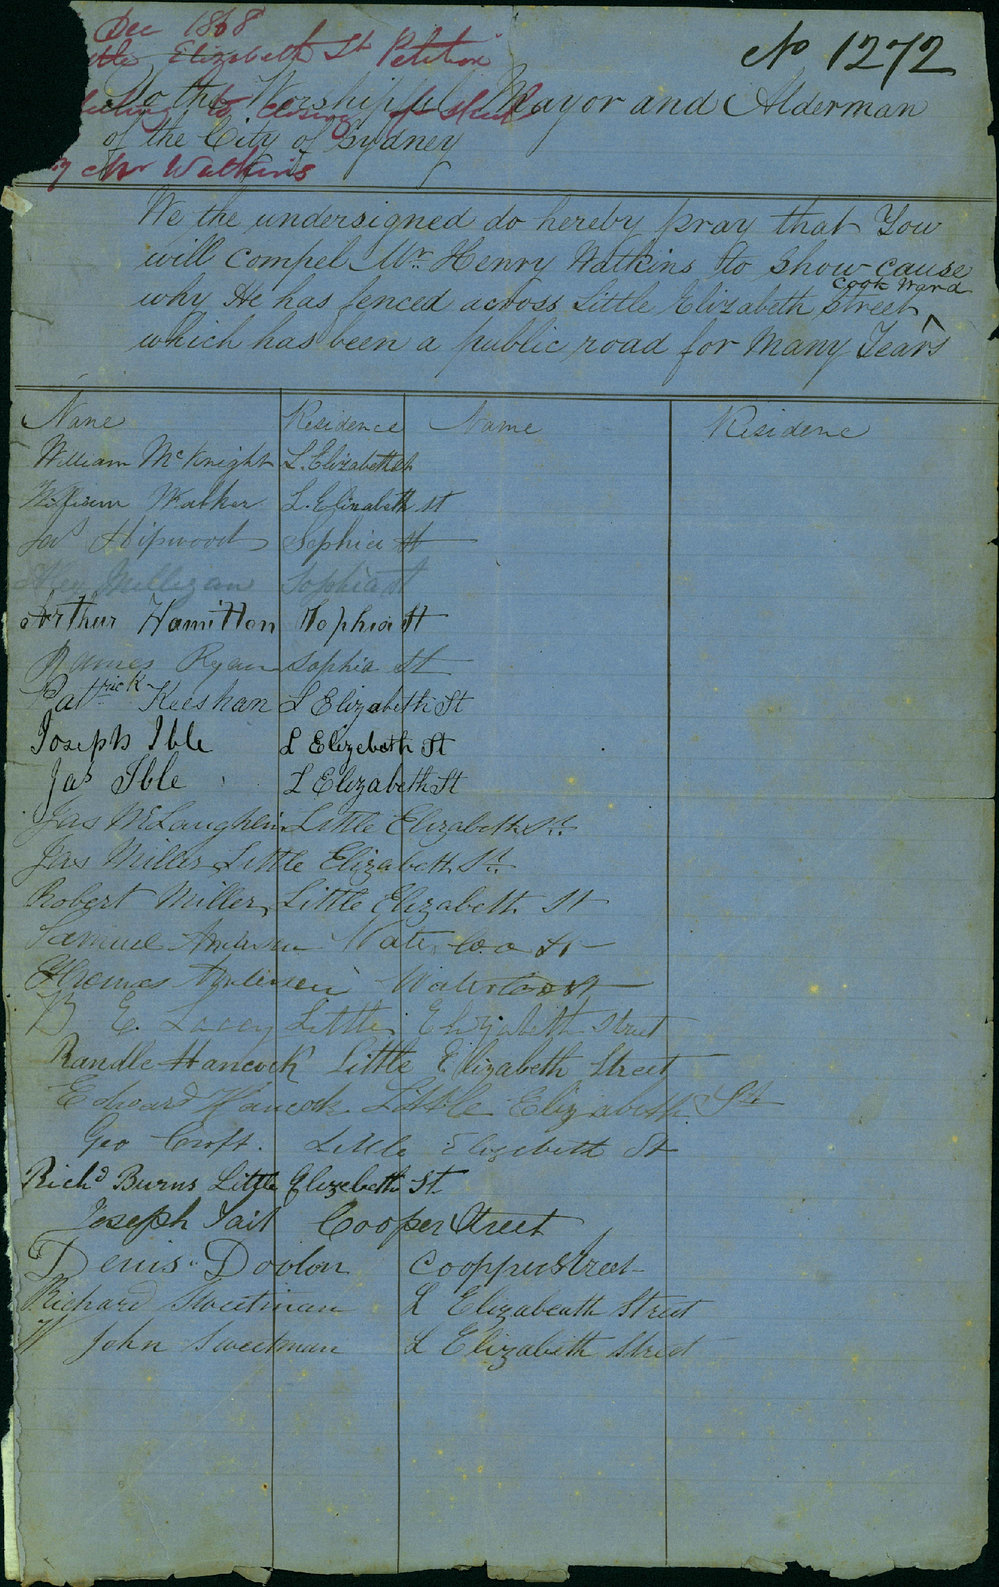 Dec 1868
Elizabeth St Petition
No 1272
To the Worshipful Mayor and Alderman
to closing of Street
of the City of Sydney
Mr Watkins
We the undersigned do hereby pray that You
will compel Mr. Henry Watkins to show cause
Cook Ward
why He has fenced across Little Elizabeth Street ^
which has been a public road for Many Years
Name Residence Name Residene
William McKnight L. Elizabeth St
William Walker L. Elizabeth St
Jas Hipwood Sophia St
Milligan Sophia St
Arthur Hamilton Sophia St
James Ryan Sophia St
Patrick Keeshan L Elizabeth St
Joseph Ible L Elizebeth St
Jas Ible L Elizabeth St
Jas McLaughlin Little Elizabeth St.
Jas Miller Little Elizabeth St.
Robert Miller, Little Elizabeth St
Samuel Anderson Waterloo St
Thomas Waterloo St
B E. Lacey Little Elizabeth Street
Randle Hancock Little Elizabeth Street
Edward Hancock Little Elizabeth St
Geo Croft. Little Elizebeth St
Richd Burns Little Elizebeth St.
Joseph Tait Cooper Street
Denis Doolon Coopper Street
Richard Sweetman L Elizabeath Street
W John Sweetman L Elizabeth Street